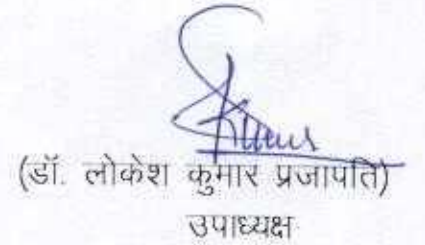 (डॉ. लोकेश कुमार प्रजापति)
उपाध्यक्ष